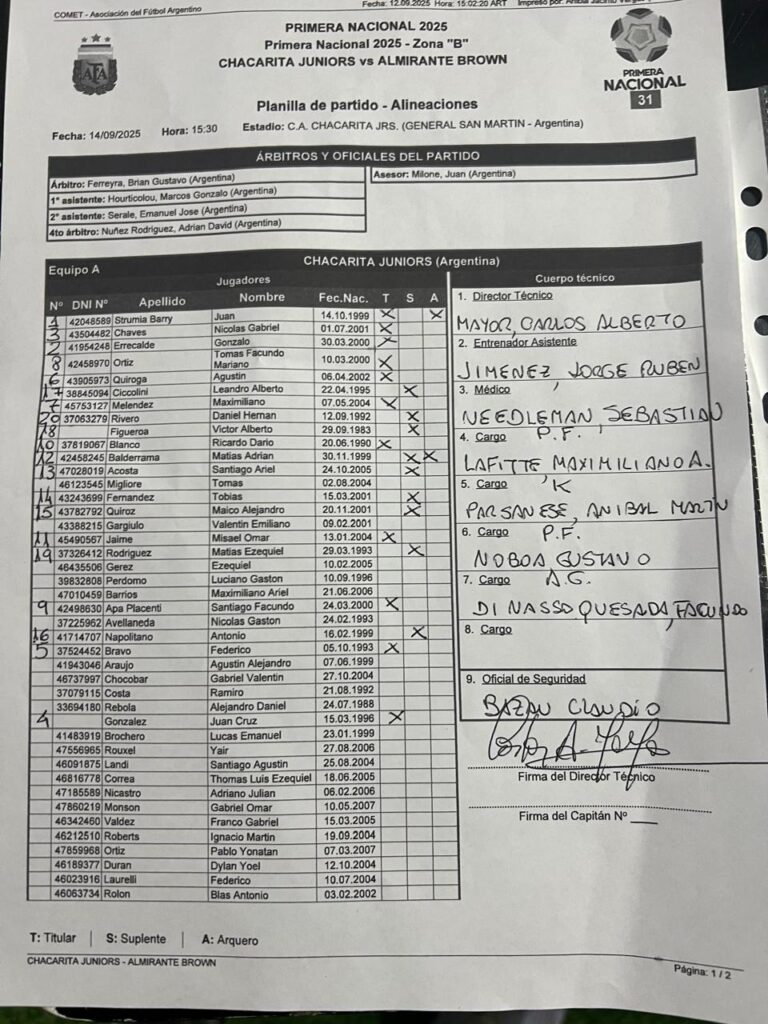 COMET - Asociación del Fútbol Argentino
Fecha: 12.09.2025 Hora: 15:02:20 ART Impreso por: Anibal Jacinto
AFA
PRIMERA NACIONAL 2025
Primera Nacional 2025 - Zona "B"
CHACARITA JUNIORS vs ALMIRANTE BROWN
PRIMERA
NACIONAL
31
Planilla de partido - Alineaciones
Fecha: 14/09/2025 Hora: 15:30 Estadio: C.A. CHACARITA JRS. (GENERAL SAN MARTIN - Argentina)
ÁRBITROS Y OFICIALES DEL PARTIDO
Árbitro: Ferreyra, Brian Gustavo (Argentina)
Asesor: Milone, Juan (Argentina)
1° asistente: Hourticolou, Marcos Gonzalo (Argentina)
2° asistente: Serale, Emanuel Jose (Argentina)
4to árbitro: Nuñez Rodriguez, Adrian David (Argentina)
Equipo A CHACARITA JUNIORS (Argentina)
Jugadores
Nº DNI Nº Apellido Nombre Fec.Nac. T S A
1 42048589 Strumia Barry Juan 14.10.1999 X X
3 43504482 Chaves Nicolas Gabriel 01.07.2001 X
2 41954248 Errecalde Gonzalo 30.03.2000 X
8 42458970 Ortiz Tomas Facundo Mariano 10.03.2000 X
6 43905973 Quiroga Agustin 06.04.2002 X
17 38845094 Ciccolini Leandro Alberto 22.04.1995 X
7 45753127 Melendez Maximiliano 07.05.2004 X
20 37063279 Rivero Daniel Hernan 12.09.1992 X
18 Figueroa Victor Alberto 29.09.1983 X
10 37819067 Blanco Ricardo Dario 20.06.1990 X
12 42458245 Balderrama Matias Adrian 30.11.1999 X X
13 47028019 Acosta Santiago Ariel 24.10.2005 X
46123545 Migliore Tomas 02.08.2004
14 43243699 Fernandez Tobias 15.03.2001 X
15 43782792 Quiroz Maico Alejandro 20.11.2001 X
43388215 Gargiulo Valentin Emiliano 09.02.2001
11 45490567 Jaime Misael Omar 13.01.2004 X
19 37326412 Rodriguez Matias Ezequiel 29.03.1993 X
46435506 Gerez Ezequiel 10.02.2005
39832808 Perdomo Luciano Gaston 10.09.1996
47010459 Barrios Maximiliano Ariel 21.06.2006
9 42498630 Apa Placenti Santiago Facundo 24.03.2000 X
37225962 Avellaneda Nicolas Gaston 24.02.1993
16 41714707 Napolitano Antonio 16.02.1999 X
5 37524452 Bravo Federico 05.10.1993 X
41943046 Araujo Agustin Alejandro 07.06.1999
46737997 Chocobar Gabriel Valentin 27.10.2004
37079115 Costa Ramiro 21.08.1992
33694180 Rebola Alejandro Daniel 24.07.1988
4 Gonzalez Juan Cruz 15.03.1996 X
41483919 Brochero Lucas Emanuel 23.01.1999
47556965 Rouxel Yair 27.08.2006
46091875 Landi Santiago Agustin 25.08.2004
46816778 Correa Thomas Luis Ezequiel 18.06.2005
47185589 Nicastro Adriano Julian 06.02.2006
47860219 Monson Gabriel Omar 10.05.2007
46342460 Valdez Franco Gabriel 15.03.2005
46212510 Roberts Ignacio Martin 19.09.2004
47859968 Ortiz Pablo Yonatan 07.03.2007
46189377 Duran Dylan Yoel 12.10.2004
46023916 Laurelli Federico 10.07.2004
46063734 Rolon Blas Antonio 03.02.2002
Cuerpo técnico
1. Director Técnico
MAYOR, CARLOS ALBERTO
2. Entrenador Asistente
JIMENEZ, JORGE RUBEN
3. Médico
NEEDLEMAN, SEBASTIAN
4. Cargo P.F.
LAFITTE MAXIMILIANO A.
5. Cargo K
PARSANESE, ANIBAL MARTIN
6. Cargo P.F.
NOBOA GUSTAVO
7. Cargo A.G.
DI NASSO QUESADA, FACUNDO
8. Cargo
9. Oficial de Seguridad
BAZAN CLAUDIO
Firma del Director Técnico
Firma del Capitán Nº
T: Titular | S: Suplente | A: Arquero
CHACARITA JUNIORS - ALMIRANTE BROWN
Página: 1 / 2